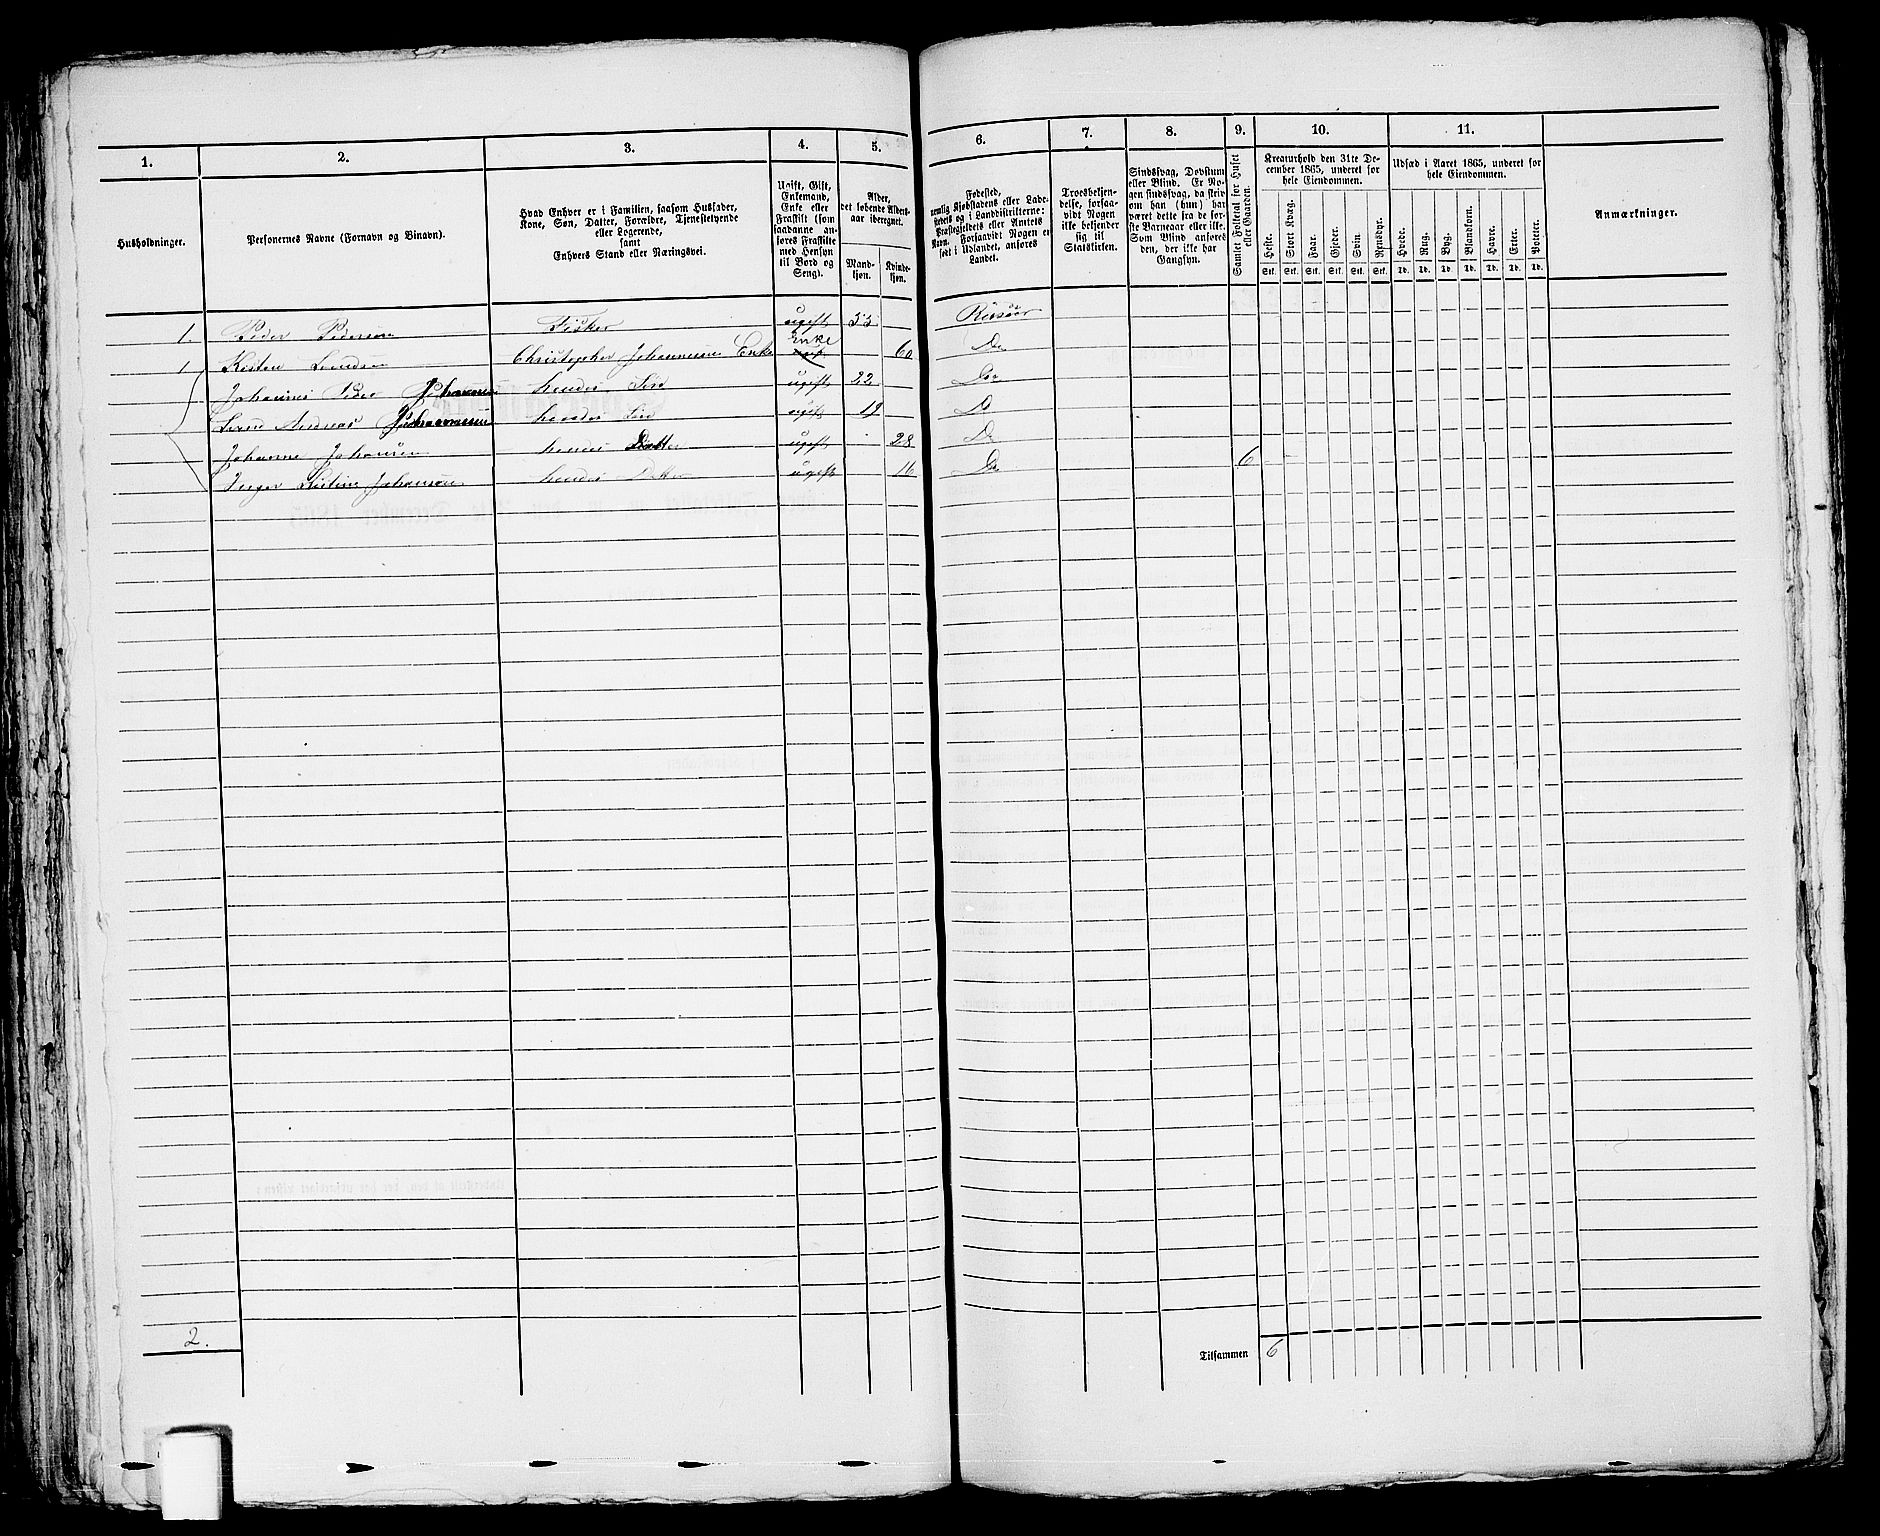 1. 2. 3. 4. 5. 6. 7. 8. 9. 10. 11.
Husholdninger.
Personernes Navne (Fornavn og Binavn).
Hvad Enhver er i Familien, saasom Husfader,
Kone, Søn, Datter, Forældre, Tjenestetyende
eller Logerende,
samt
Enhvers Stand eller Næringsvei.
Ugift, Gift,
Enkemand,
Enke eller
Fraskilt (som
saadanne an-
føres Fraskilte
med Hensyn
til Bord og
Seng).
Alder,
det løbende Alders-
aar iberegnet.
Mand-
kjøn.
Kvinde-
kjøn.
Fødested,
nemlig Kjøbstadens eller Lade-
stedets og i Landdistrikterne:
Præstegjeldets eller Amtets
Navn. Forsaavidt Nogen er
født i Udlandet, anføres
Landet.
Troesbekjen-
delse, forsaa-
vidt Nogen
ikke bekjender
sig til
Statskirken.
Sindssvag, Døvstum
eller Blind. Er No-
gen sindssvag, da skriv
om han (hun) har
været dette fra de før-
ste Barneaar eller ikke.
Som Blind anføres
den, der ikke har
Gangsyn.
Samlet Folketal for Huset
eller Gaarden.
Kreaturhold den 31te De-
cember 1865, underet for
hele Eiendommen.
Heste. Stort Kvæg. Faar. Gjeder. Svin. Rensdyr.
Stk. Stk. Stk. Stk. Stk. Stk.
Udsæd i Aaret 1865, underet for
hele Eiendommen.
Hvede. Rug. Byg. Blandkorn. Havre. Erter. Poteter.
Td. Td. Td. Td. Td. Td. Td.
Anmærkninger.
1. Peder Pedersen Fisker ugift 33 Risøer
1 Kisten Svendsen Christopher Johannesen Enke Enke 60 Do
Johannes Peder Johannesen hendes Søn ugift 22 Do
Svend Andreas Johannesen hendes Søn ugift 19 Do
Johanne Johansen hendes Datter ugift 28 Do
Inger Kistine Johansen hendes Datter ugift 16 Do 6
2.
Tilsammen 6